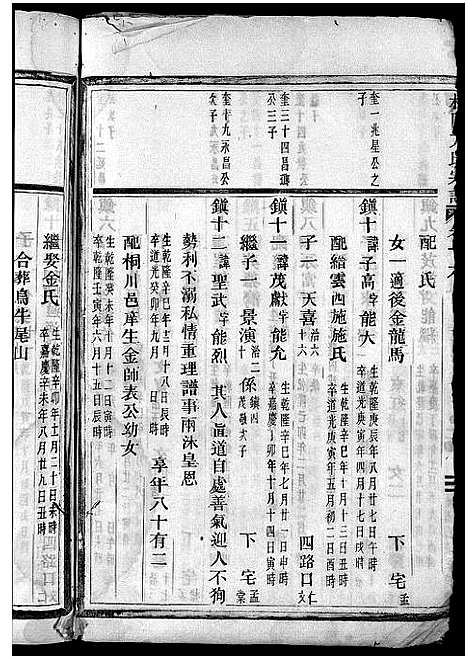 配氏
女一適後金龍馬 下宅孟
奎一兆星公之子
鎮十諱子高字能大 生乾隆庚辰年八月廿七日午時 卒道光庚寅年四月十七日戌時
配紿雲四施施氏 生乾隆辛巳年十月十三日丑時 卒道光庚寅年五月初二日酉時
子一天喜洽十六 四路口仁
奎三十四昌瑯公三子
鎮十一諱茂獻字能允 生乾隆辛巳年七月廿一日申時 卒嘉慶丁卯年十月十四日寅時
繼子一景演洽二十 係鎮四茂發次子 下宅孟棠
奎十九永昌公子
鎮十二諱聖武字能烈 其人直道自處善氣迎人不狥
勢利不溺私情重理譜事兩沐皇恩
生乾隆辛巳年十二月十八日辰時 卒道光癸卯年九月 時 享年八十有二
配桐川邑庠生金師表公幼女
生乾隆癸未年十月十二日寅時 卒乾隆壬寅年六月十五日辰時
繼娶金氏 生乾隆辛卯年十二月二十日未時 卒嘉慶辛未年八月廿九日丑時
合葬鳥牛尾山 四路口仁